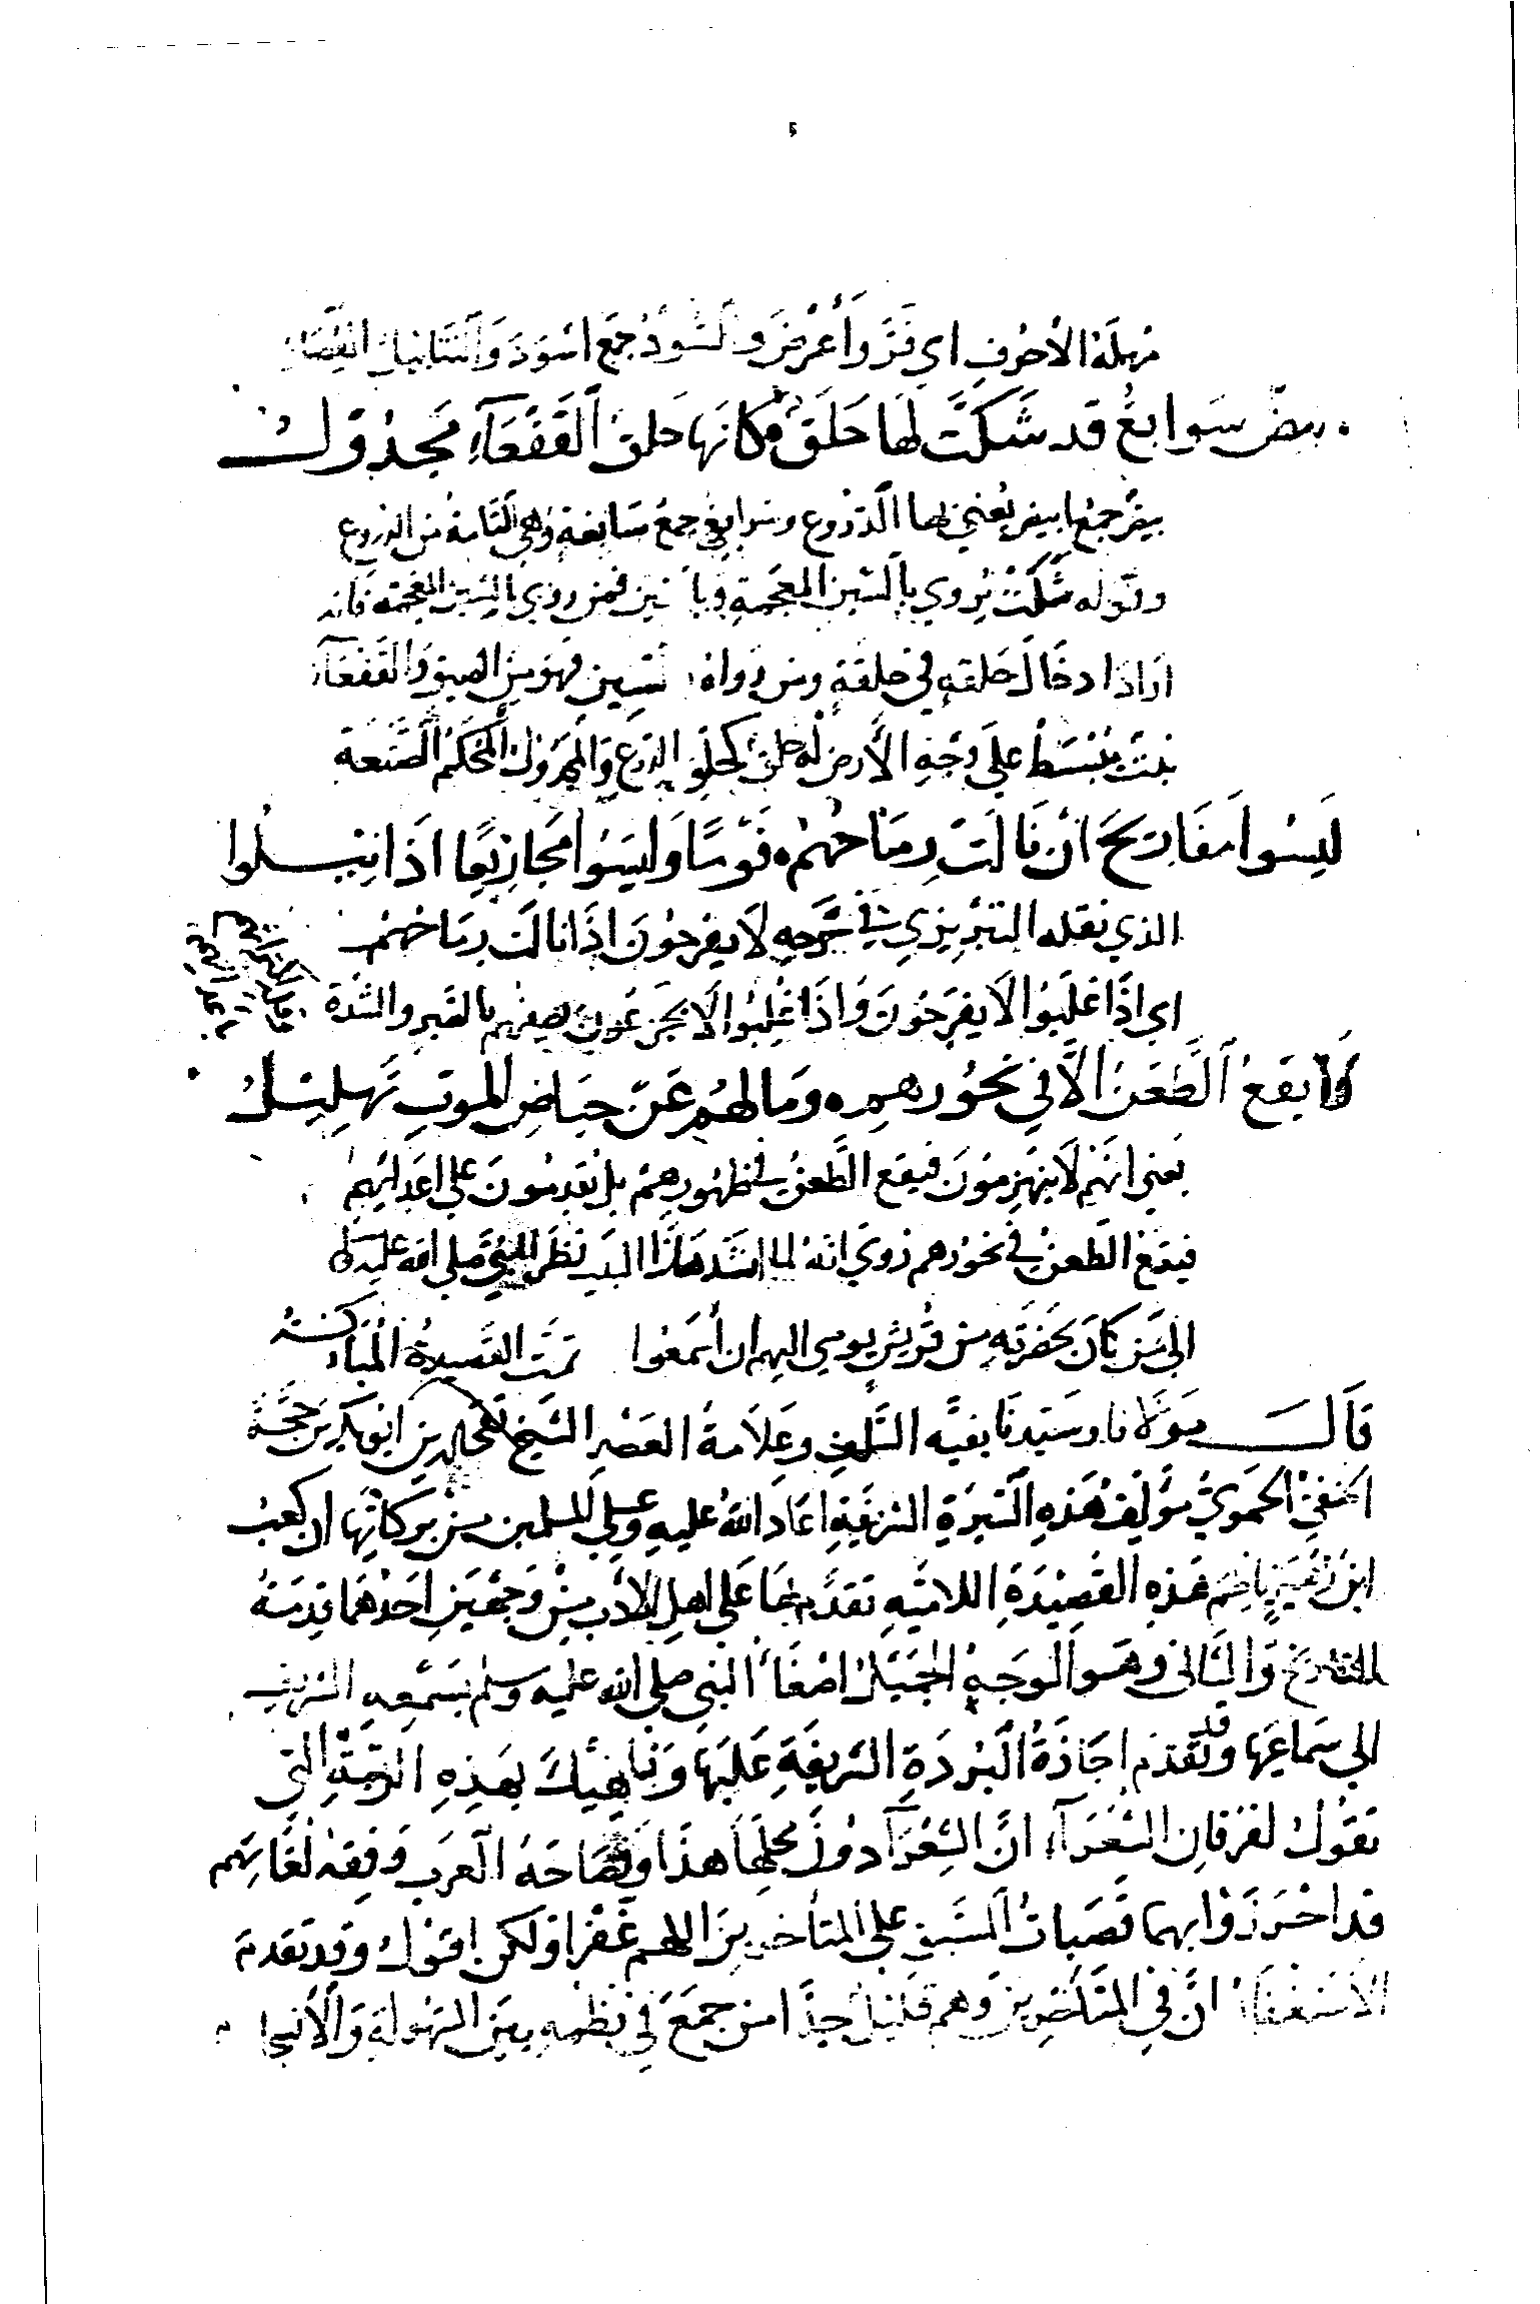 مهملة الاحرف اي فَرَّ وَأَعْرَضَ والسُّودُ جمَع اسْوَدَ وَالتنابيل القصار
بيض سَوابغُ قد شَكَّتْ لهَا حَلَقٌ كانها حَلقُ القَفعَآءِ مجدُولُ
بيضٌ جمعُ ابيض يعني بها الدّرُوع وسَوابغ جمعُ سَابغةٍ وهي التّامة من الدروع
وقوله شُكَّتْ يُروي بالشين المعجمةِ وبالسين فمن روي بالشين المعجمة فانه
ارَادَ ادخَال حَلقةٍ في حلقةٍ ومن رواهُ بالسين فهوَ من الضيق وَالقفعَآء
نبتٌ ينبسَطُ علي وَجْهِ الأرض له حلقٌ كحلَق الدرع وَالمجدُولُ المحكَمُ الصَّنعَة
لَيسُوا مفَارِيحَ ان نَالَتْ رِمَاحُهُمْ قَوْمًا وَلَيسَوُا مَجازيعًا اذَا نِيلُوا
الذي نقله التبْريزي في شَرحهِ لَا يفرحُونَ اذَا نالَت رِمَاحُهُمْ
اي اذَا غَلَبُوا لَا يفرَحُونَ وَاذَا غُلِبُوا لَا يجزَعُونَ يصفهم بالصَبر والشدّة
لا يقعُ الطَّعَنُ الَّا في نحُورهمِ وَمَا لهُم عَنْ حيَاضِ الموتِ تَهلِيلُ
يَعني انهَمْ لَا ينهَزمُونَ فيقع الطَّعنُ في ظهُورهمْ بل يُقدِمُونَ علي اعدَائهِمْ
فيقعُ الطَعنُ في نحوُرهم رُويَ انَهُ لما انشَد هَذا البيت نَظَر النبي صلي الله عليه
الي مَن كانَ بحَضرَتهِ من قُرَيش يومي اليهم ان اسْمَعُوا تمتَّ القصيدةُ المُباركةُ
قَالَ مَولَانا وسَيّدنَا بقيَّة السَّلفِ وعَلاَمةُ العَصْرِ الشَيخ تقي الدين ابو بكر بن حجَّة
الحنفيّ الحَمَويّ مؤلِفُ هَذهِ السّيرَةِ الشريفَةِ اعَادَ اللهُ عليهِ وعلي المسلمين من بركاتِها ان كعبُ
ابنَ زُهَيرٍ ناظمَ هَذهِ القصِيدَةِ اللاميةِ تقدَّم بها عَلي اهلِ الأدب مِنْ وَجهَينِ احَدهُمَا قِدمَةُ
التاريخ وَالثّاني وهَو الوجهُ الجَميلُ اصْغاءُ النبي صلي الله عليه وسلم بسَمْعِهِ الشريف
الي سَماعِهَا وقد تقدّم اجَازَةُ البُردَةِ الشريفَةِ عَلَيهَا وَنَاهِيكَ بهَذِهِ الرتبَةِ التي
تقوُلُ لفرقانِ الشعَرَآءِ انَّ الشُعَرَآ دُونَ محلِّهَا هذا وفصَاحَةُ العَرَبِ وَفِقهُ لغَاتِهم
قد احْرَزُوا بهما قَصَبَاتُ السَبقِ علي المتأخِرينَ اللهم غَفْرًا ولكن اقوُلُ وقد تقدمَ
الاسْتغفارُ انَّ في المتَأخِرينَ وَهم قليل جدًّا من جمَعَ في نظمِهِ بينَ السُهُولَةِ وَالانسجا م